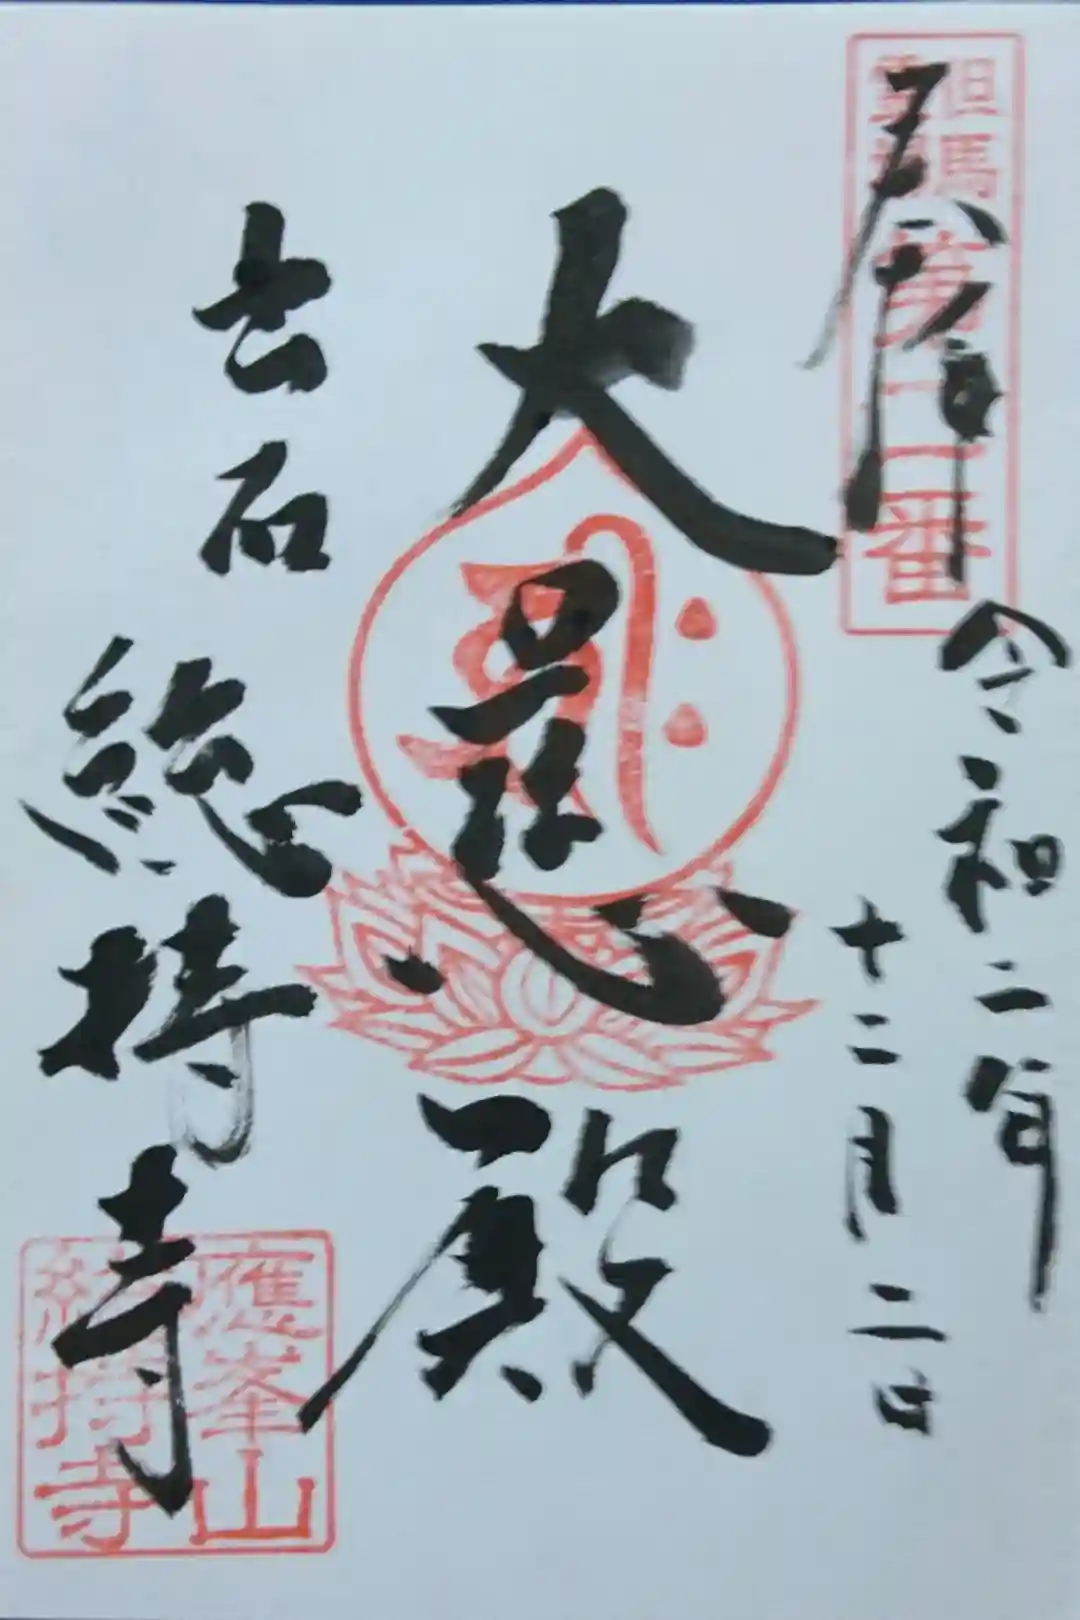 奉拝
但馬
第二番
令和二年
十二月二日
大悲殿
出石
總持寺
應峯山
總持寺